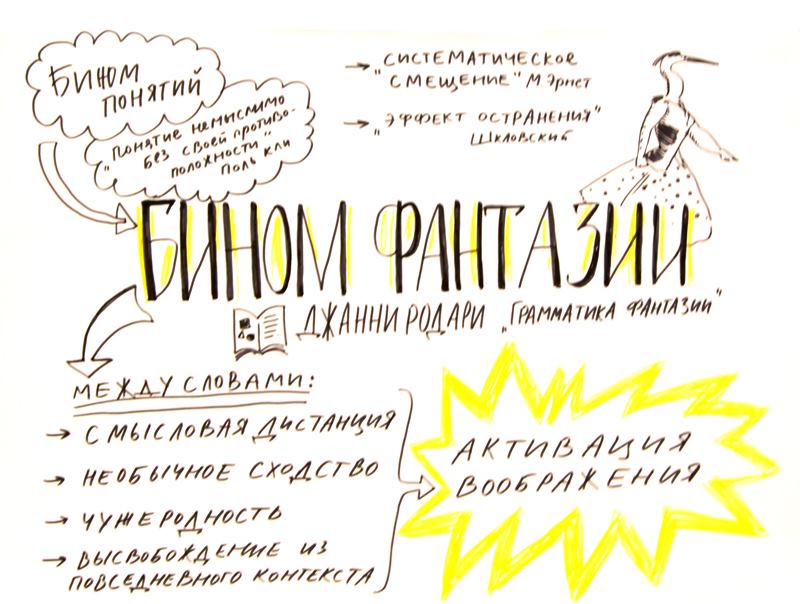 БИНОМ
ПОНЯТИЙ
„ПОНЯТИЕ НЕМЫСЛИМО
БЕЗ СВОЕЙ ПРОТИВО-
ПОЛОЖНОСТИ"
ПОЛЬ КЛИ
→ СИСТЕМАТИЧЕСКОЕ
„СМЕЩЕНИЕ" М. Эрнст
→ „ЭФФЕКТ ОСТРАНЕНИЯ"
ШКЛОВСКИЙ
БИНОМ ФАНТАЗИИ
ДЖАННИ РОДАРИ „ГРАММАТИКА ФАНТАЗИИ"
МЕЖДУ СЛОВАМИ:
→ СМЫСЛОВАЯ ДИСТАНЦИЯ
→ НЕОБЫЧНОЕ СХОДСТВО
→ ЧУЖЕРОДНОСТЬ
→ ВЫСВОБОЖДЕНИЕ ИЗ
ПОВСЕДНЕВНОГО КОНТЕКСТА
АКТИВАЦИЯ
ВООБРАЖЕНИЯ